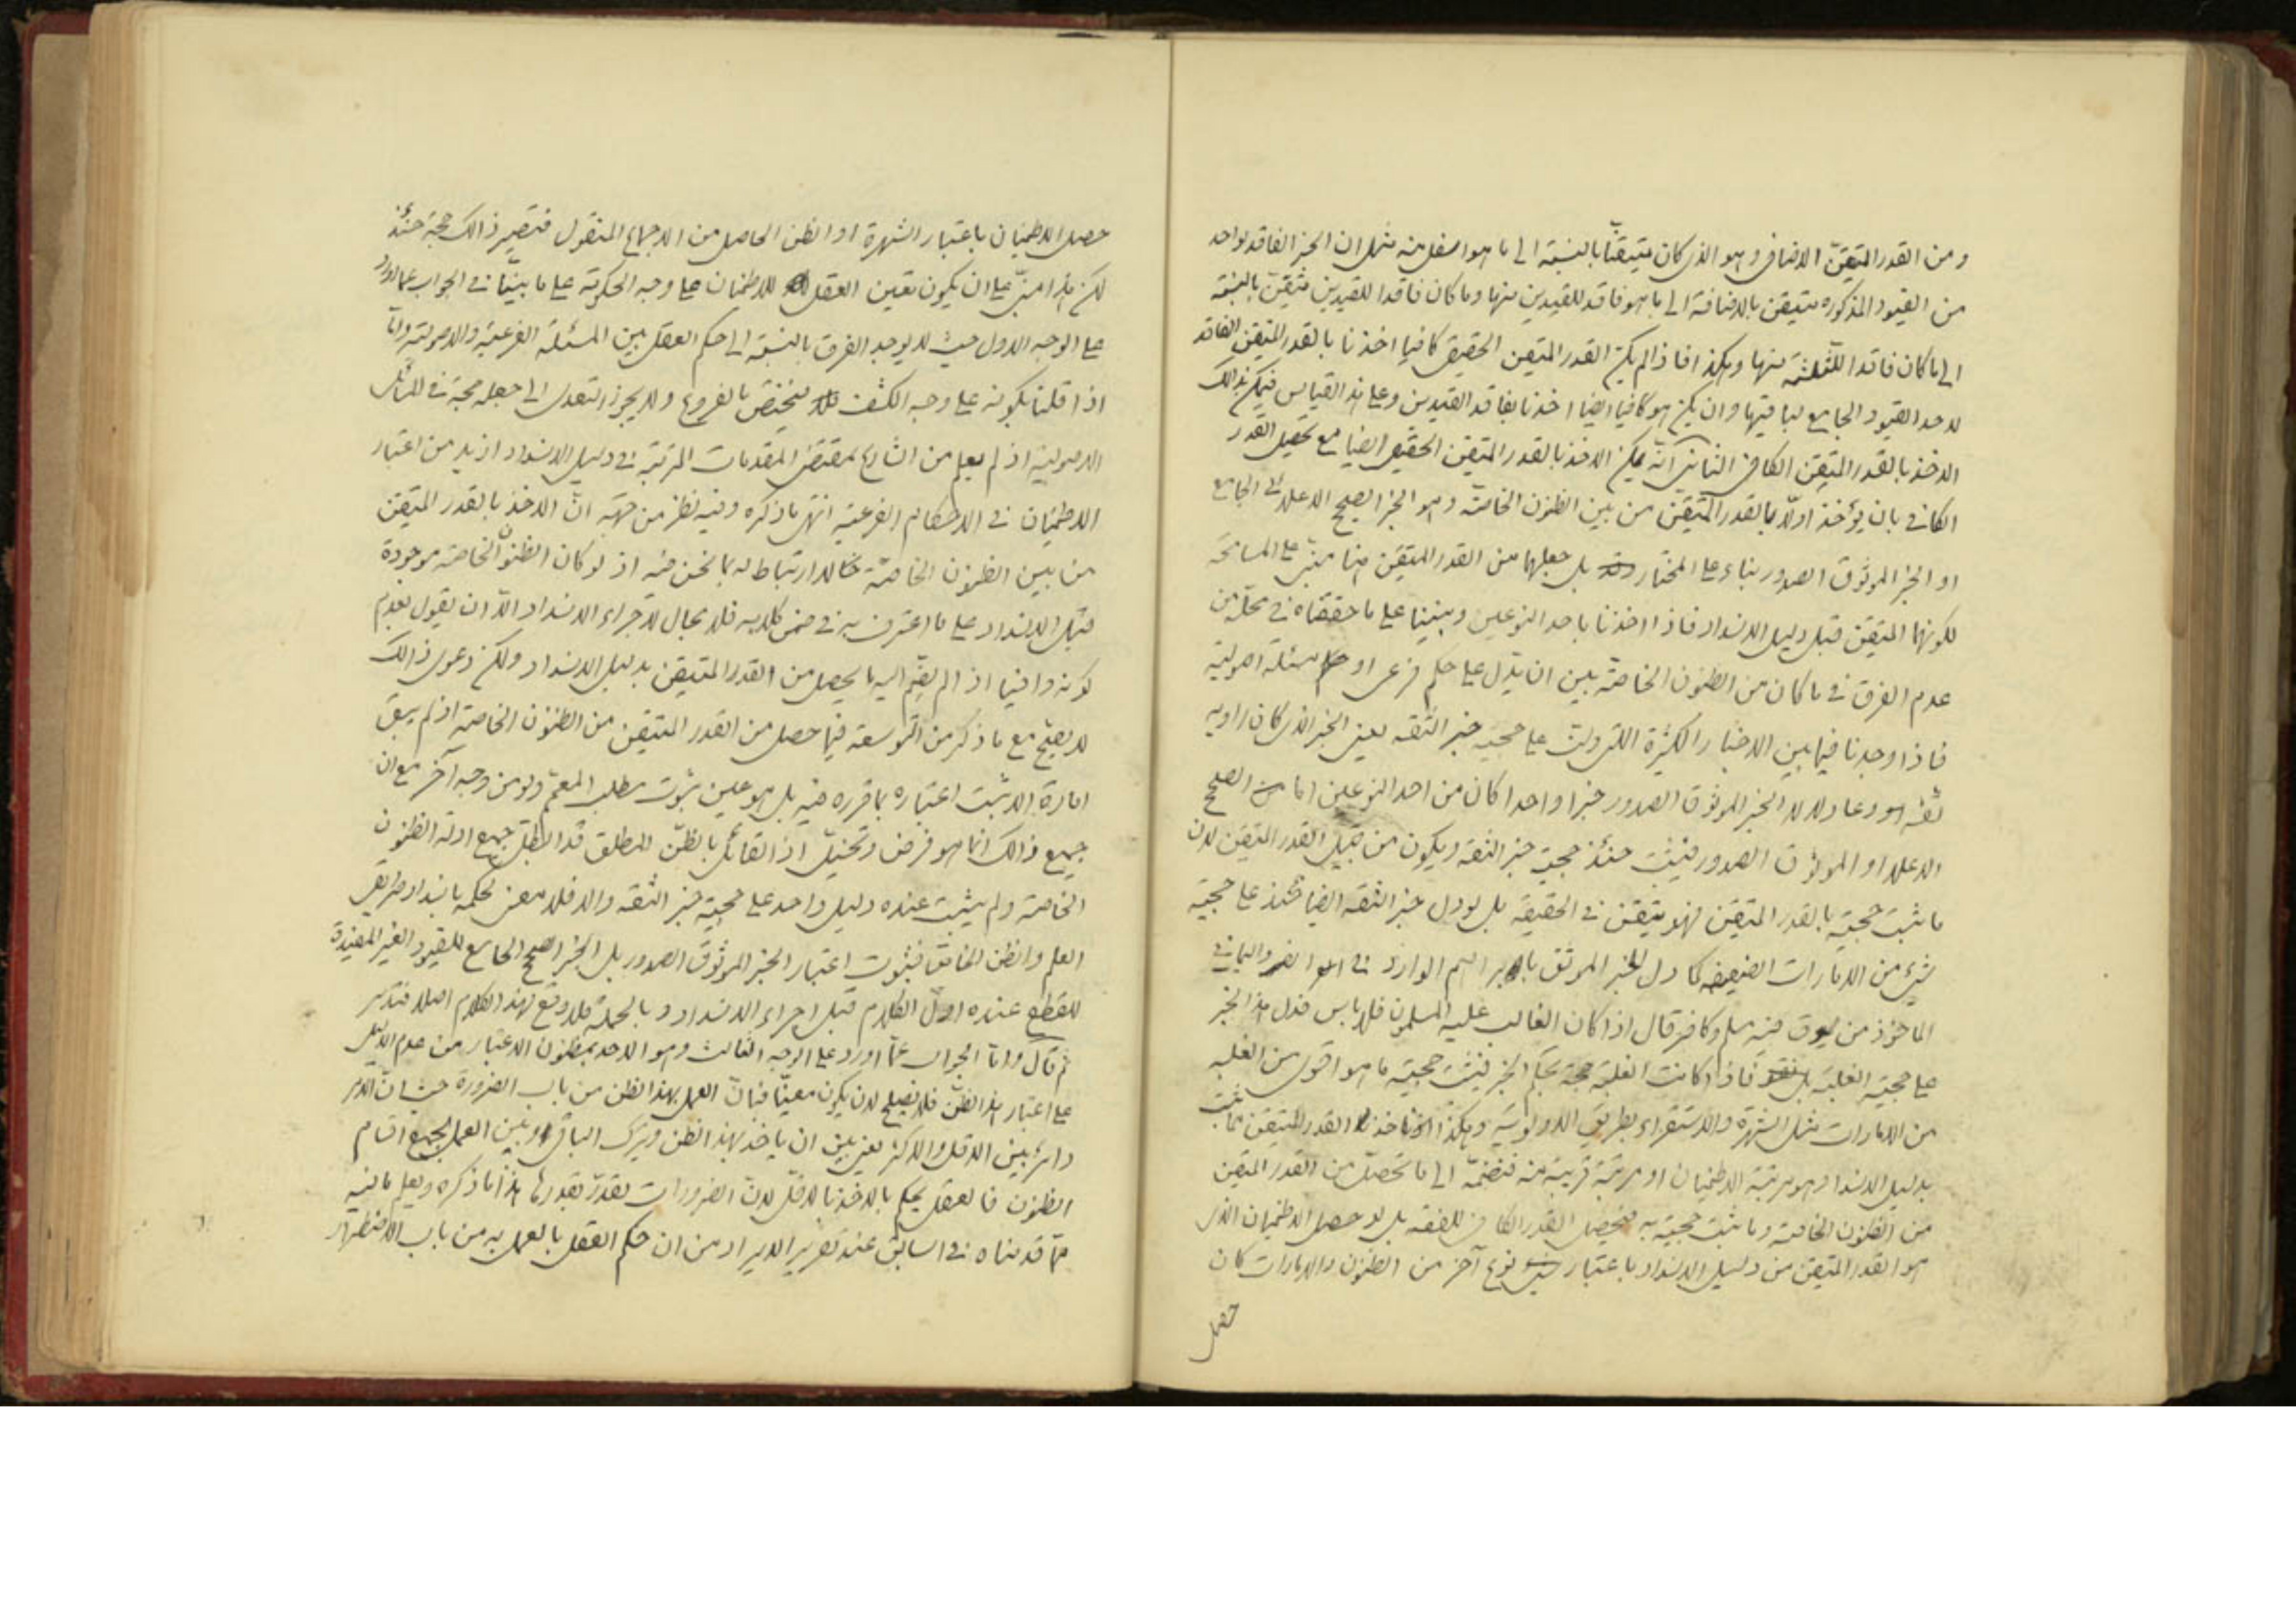 ومن القدر المتيقن الاضافى وهو الذى كان متيقنا بالنسبة الى ما هو اسفل منه مثل ان الخبر الفاقد لواحد
من القيود المذكوره متيقن بالاضافة الى ما هو فاقد للقيدين منها وما كان فاقدا للقيدين متيقن بالنسبة
الى ما كان فاقدا للثلثة منها وهكذا فاذا لم يكن القدر المتيقن الحقيقى كافيا اخذنا بالقدر المتيقن الفاقد
لاحد القيود الجامع لباقيها وان لم يكن هو كافيا ايضا اخذنا بفاقد القيدين وعلى هذا القياس فيمكن بذالك
الاخذ بالقدر المتيقن الكافى الثانى انه يمكن الاخذ بالقدر المتيقن الحقيقى ايضا مع تحصيل القدر
الكافى بان يؤخذ اولا بالقدر المتيقن من بين الظنون الخاصة وهو الخبر الصحيح الاعلائى الجامع
او الخبر الموثوق الصدور بناء على المختار بل جعلهما من القدر المتيقن هنا مبنى على المسامحة
لكونهما المتيقن قبل دليل الانسداد فاذا اخذنا باحد النوعين وبنينا على ما حققناه فى محله من
عدم الفرق فى ما كان من الظنون الخاصة بين ان يدل على حكم فرعى او مسئلة اصولية
فاذا وجدنا فيما بين الاخبار الكثيرة التى دلت على حجية خبر الثقه يعنى الخبر الذى كان راويه
ثقه وعادلا لا الخبر الموثوق الصدور خبرا واحدا كان من احد النوعين اما من الصحيح
الاعلاء او الموثوق الصدور فيثبت حنئذ حجية خبر الثقه ويكون من قبيل القدر المتيقن لان
ما ثبت حجيته بالقدر المتيقن فهو متيقن فى الحقيقه بل لو دل خبر الثقه ايضا حنئذ على حجية
شئ من الامارات الضعيفه كما دل الخبر الموثق بابراهيم الوارد فى الفرو اليمانى
الماخوذ من سوق فيه مسلم وكافر قال اذا كان الغالب عليه المسلمون فلا باس فدل هذا الخبر
على حجية الغلبة فاذا كانت الغلبة حجة بحكم الخبر فيثبت حجية ما هو اقوى من الغلبه
من الامارات مثل الشهرة والاستقراء بطريق الاولوية وهكذا اذا اخذنا القدر المتيقن مما ثبت
بدليل الانسداد وهو مرتبة الاطمينان او مرتبة قريبة منه فنضمه الى ما تحصل من القدر المتيقن
من الظنون الخاصة وما ثبت حجيته به فيحصل القدر الكافى للفقه بل لو حصل الاطمينان الذى
هو القدر المتيقن من دليل الانسداد باعتبار نوع آخر من الظنون والامارات كان
حصل
حصل الاطمينان باعتبار الشهرة او الظن الحاصل من الاجماع المنقول فتصير ذالك حجة حنئذ
لكن هذا مبنى على ان يكون تعيين العقل للاطمنان على وجه الحكومة على ما بيننا فى الجواب عما اورد
على الوجه الاول حيث لا يوجد الفرق بالنسبة الى حكم العقل بين المسئلة الفرعية والاصولية واما
اذا قلنا بكونه على وجه الكشف فيختص بالفروع ولا يجوز التعدى الى جعله حجة فى المسائل
الاصولية اذ لم يعلم من الشارع بمقتضى المقدمات المرتبة فى دليل الانسداد ازيد من اعتبار
الاطمينان فى الاحكام الفرعية انتهى ما ذكره وفيه نظر من جهة ان الاخذ بالقدر المتيقن
من بين الظنون الخاصة لا ارتباط له بما نحن فيه اذ لو كان الظنون الخاصة موجودة
قبل الانسداد على ما اعترف به فى ضمن كلامه فلا مجال لاجراء الانسداد الا ان يقول بعدم
كونه وافيا اذا لم يضم اليه ما يحصل من القدر المتيقن بدليل الانسداد ولكن دعوى ذالك
لا يصح مع ما ذكر من التوسعة فيما حصل من القدر المتيقن من الظنون الخاصة اذ لم يبق
امارة الا ثبت اعتباره بما قرره فيه بل هو عين ثبوت مطلب المعمم ولو من وجه آخر مع ان
جميع ذالك انما هو فرض وتخييل اذ القائل بالظن المطلق قد ابطل جميع ادلة الظنون
الخاصة ولم يثبت عنده دليل واحد على حجية خبر الثقه والا فلا معنى لحكمه بانسداد طريقى
العلم والظن الخاص فثبوت اعتبار الخبر الموثوق الصدور بل الخبر الصحيح الجامع للقيود الغير المفيدة
للقطع عنده اول الكلام قبل اجراء الانسداد وبالجملة فلا وقع لهذا الكلام اصلا فتدبر
ثم قال واما الجواب عما اورد على الوجه الثالث وهو الاخذ بمظنون الاعتبار من عدم الدليل
على اعتبار هذا الظن فلا يصلح لان يكون معينا فبان العمل بهذا الظن من باب الضرورة حيث ان الامر
دائر بين الاقل والاكثر يعنى بين ان ياخذ بهذا الظن ويترك الباقى او بين العمل بجميع اقسام
الظنون فالعقل يحكم بالاخذ بالاقل لان الضرورات تقدر بقدرها هذا ما ذكره ويعلم ما فيه
مما قدمناه فى السابق عند تقرير الايراد من ان حكم العقل بالعمل به من باب الاضطرار